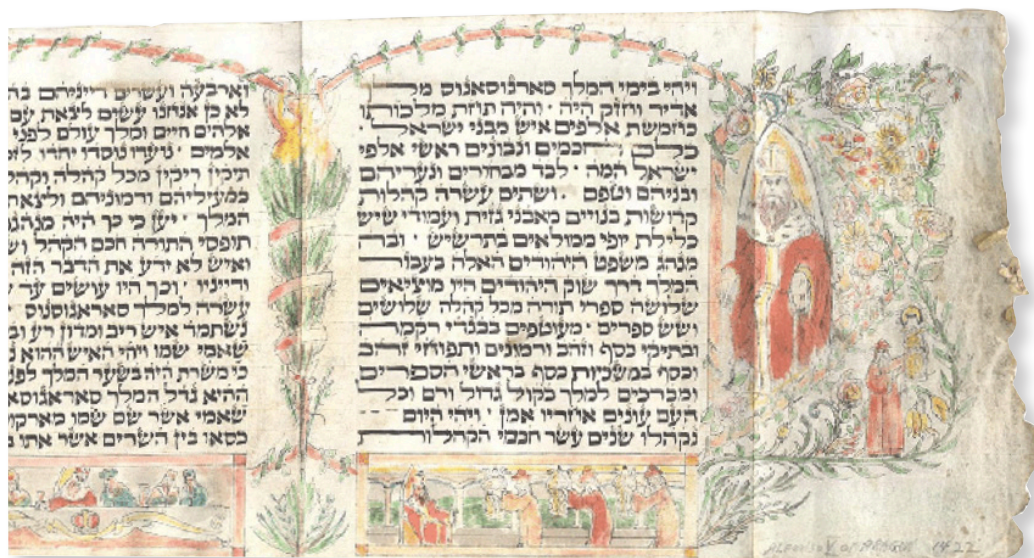 ויהי בימי המלך סארגוסאנוס מלך
אדיר וחזק היה · והיה תוחת מלכותו
כחמשת אלפים איש מבני ישראל ·
כלם חכמים ונבונים ראשי אלפי
ישראל המה · לבד מבחורים ונעריהם
ובניהם וטפם · ושתים עשרה קהלות
קדושות בנויים מאבני גזית ועמודי שיש
כלילת יופי ממולאים בתרשיש ·
מנהג משפט היהודים האלה בעבור
המלך דרך שוק היהודים היו מוציאים
שלושה ספרי תורה מכל קהלה שלושים
ושש ספרים · מעוטפים בבגדי רקמה
ובתיקי כסף וזהב ורמונים ותפוחי זהב
וכסף במשכיות כסף בראשי הספרים
ומברכים למלך בקול גדול ורם וכל
העם עונים אחריו אמן · ויהי היום
נקהלו שנים עשר חכמי הקהלות
וארבעה ועשרים דייניהם
לא כן אנחנו עשים לצאת עם
אלהים חיים ומלך עולם לפני
אלמים · נועדו נוסדו יחדו
תיקין ריקין מכל קהלה
כמעיליהם ורמוניהם ולצאת
המלך · יען כי כך היה מנהג
תופסי התורה חכם הקהל
ואיש לא ידע את הדבר הזה
ודייניו · וכך היו עושים עד
עשרה למלך סאראגוסנוס
נשתמד איש ריב ומדון רע
שאמי שמו ויהי האיש ההוא
כי משרת היה בשער המלך
ההיא גדל המלך
שאמי אשר שם שמו
כסאו בין השרים אשר אתו
ALFONSO V OF ARAGON 1422